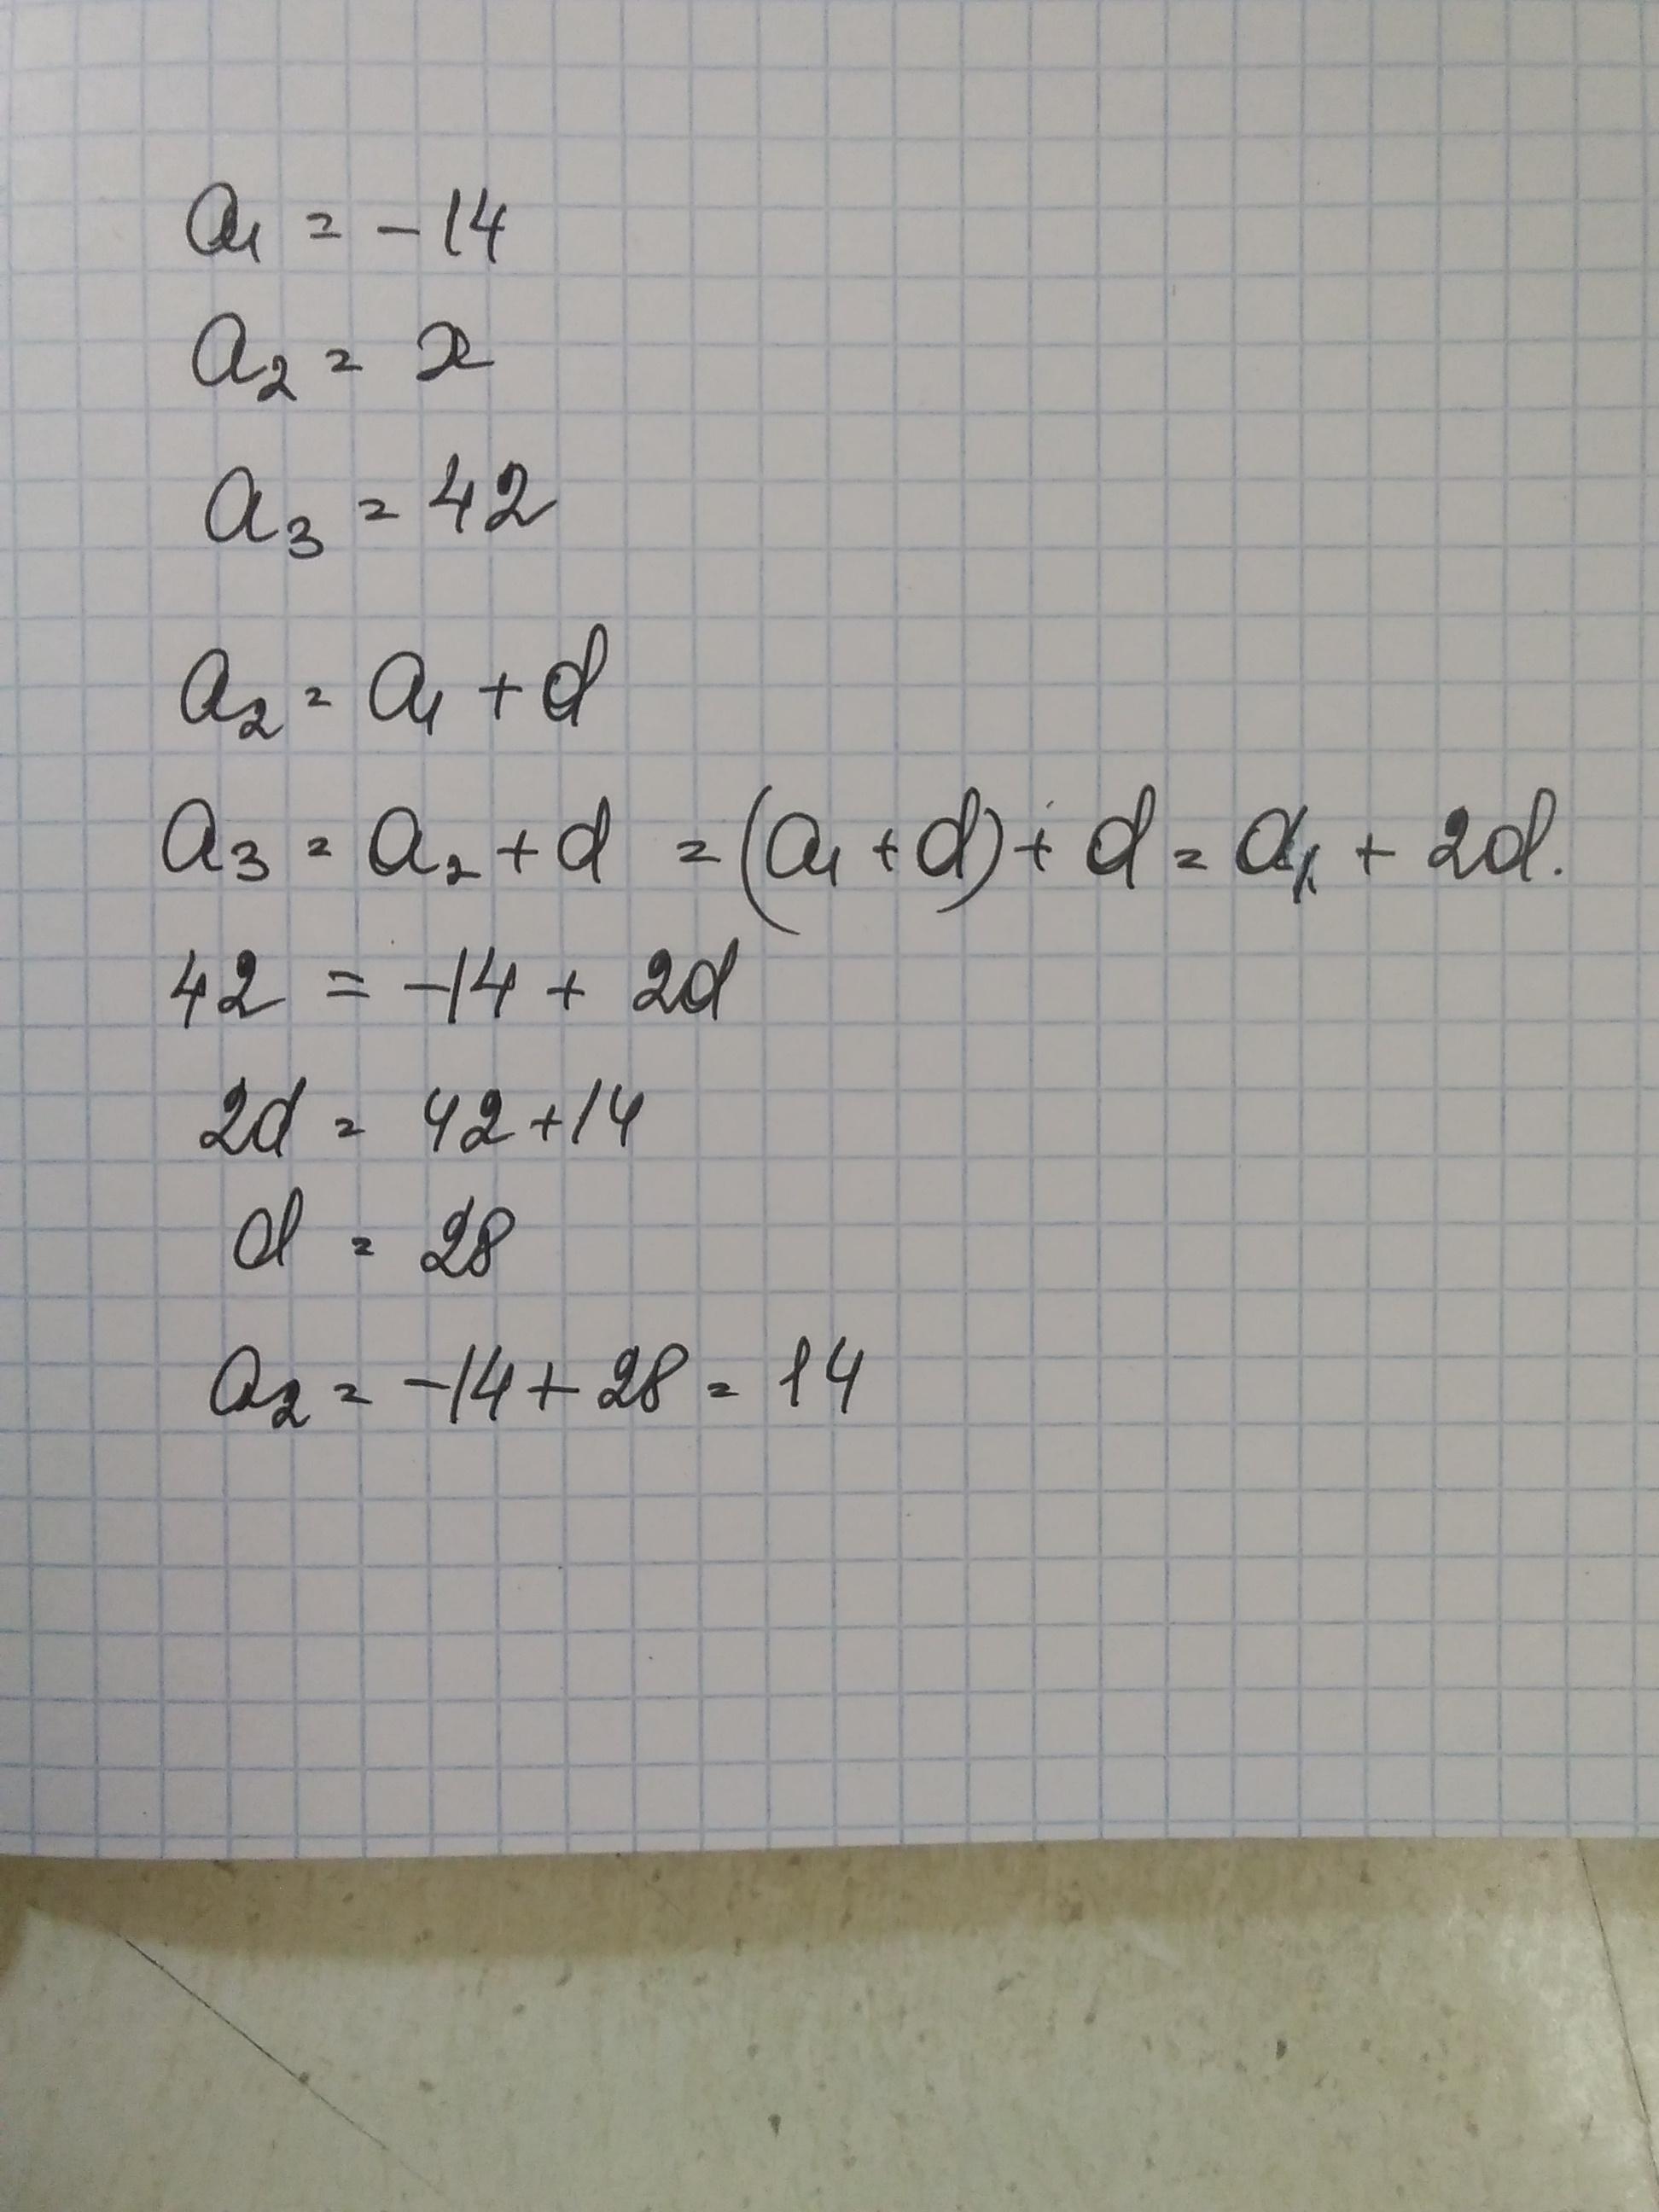 a₁ = -14
a₂ = x
a₃ = 42
a₂ = a₁ + d
a₃ = a₂ + d = (a₁ + d) + d = a₁ + 2d.
42 = -14 + 2d
2d = 42 + 14
d = 28
a₂ = -14 + 28 = 14